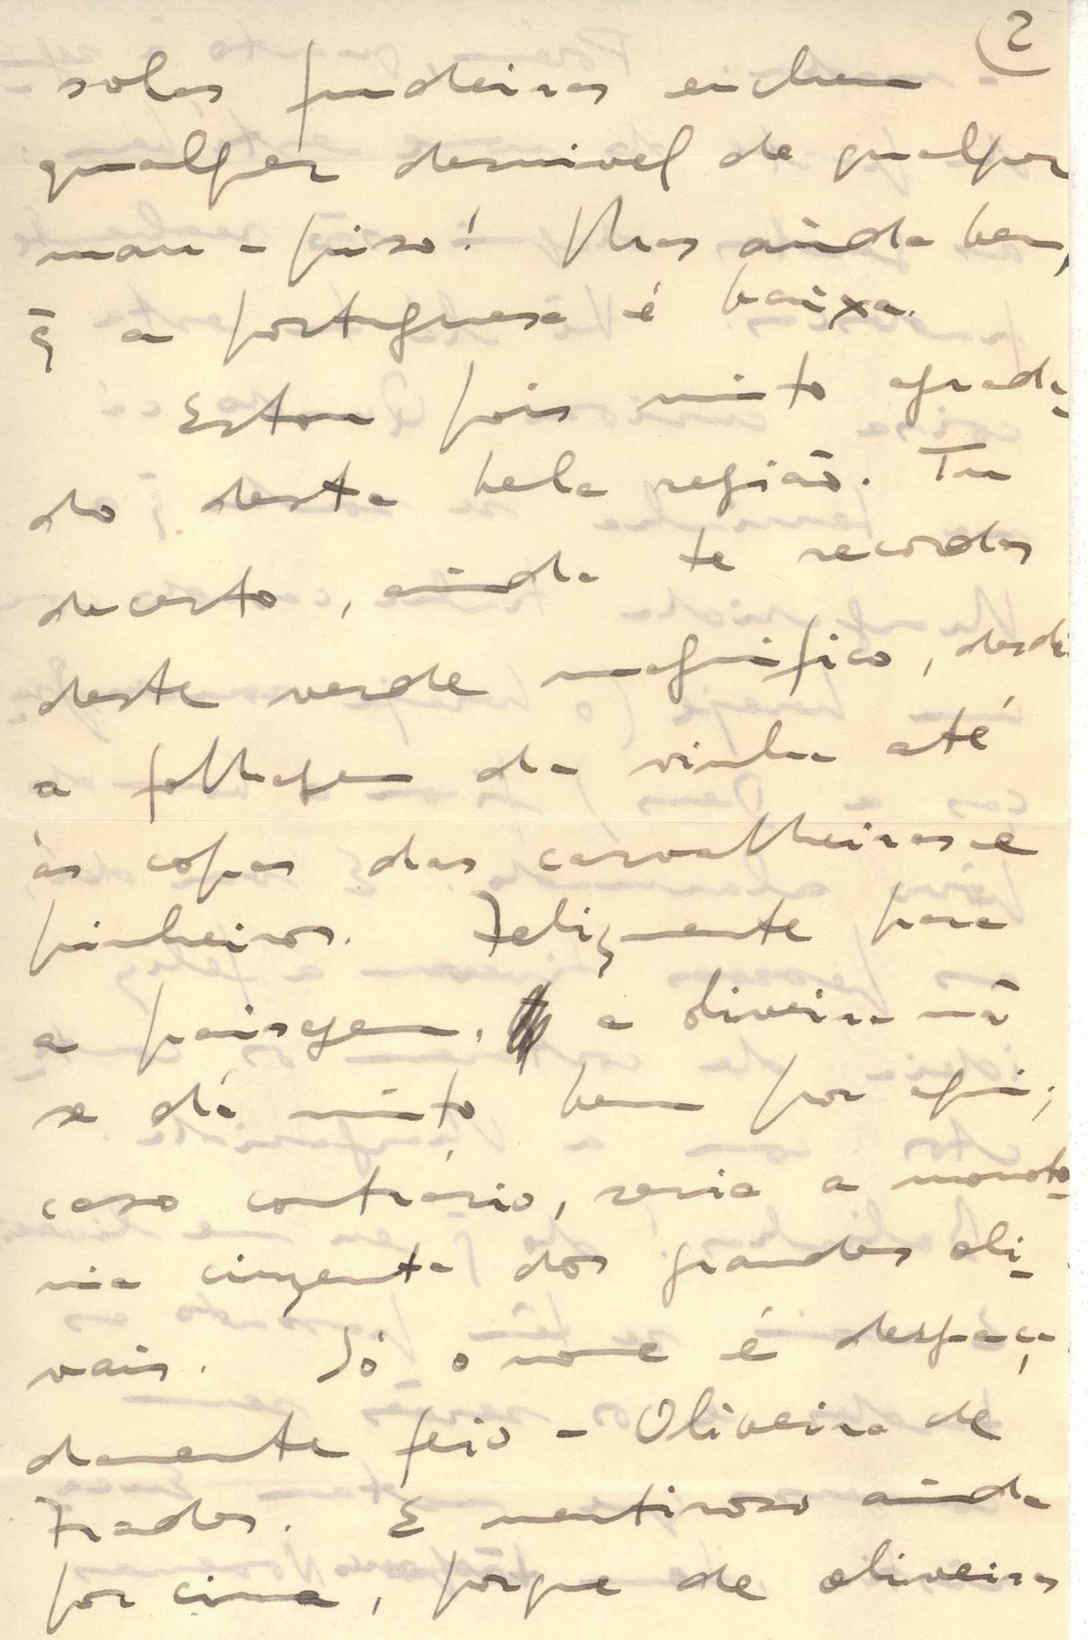 2
solas fundeiras enchem
qualquer desnivel de qualquer
mau-piso! Mas ainda bem,
q̃ a portuguesa é baixa.
Estou pois muito agrada-
do desta bela região. Tu
decerto, ainda te recordas
deste verde magnifico, desde
a folhagem da vinha até
ás copas das carvalheiras e
pinheiros. Felizmente para
a paisagem, a oliveira nã
se dá muito bem por aqui;
caso contrário, seria a monoto-
nia cinzenta dos grandes oli-
vais. Só o nome é
feio - Oliveira de
Frades. E mentiroso ainda
por cima, porque de oliveiras